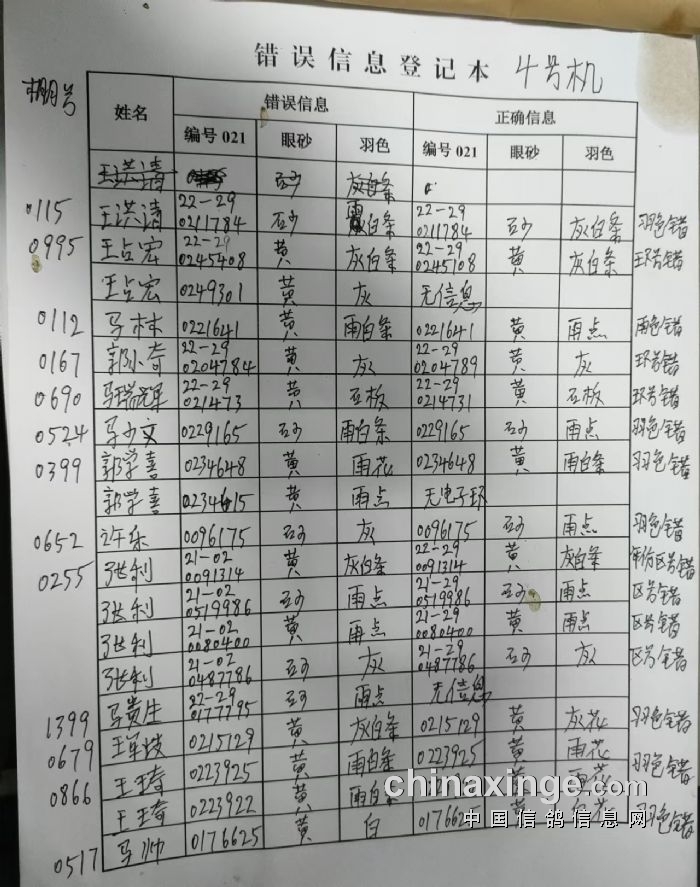 错误信息登记本 4号机
棚号
姓名 错误信息 正确信息
编号021 眼砂 羽色 编号021 眼砂 羽色
王洪清 砂 灰白条
0115 王洪清 22-29 0211784 砂 雨白条 22-29 0211784 砂 灰白条 羽色错
0995 王占宏 22-29 0245408 黄 灰白条 22-29 0245108 黄 灰白条 环号错
王占宏 0249301 黄 灰 无信息
0112 马林 0221641 黄 雨白条 0221641 黄 雨点 雨色错
0167 郭小奇 22-29 0204784 黄 灰 22-29 0204789 黄 灰 环号错
0690 马瑞辉 22-29 021473 黄 石板 22-29 0214731 黄 石板 环号错
0524 马少文 0229165 砂 雨白条 0229165 砂 雨点 羽色错
0399 郭学喜 0234648 黄 雨花 0234648 黄 雨白条 羽色错
郭学喜 0234615 黄 雨点 无电子环
0652 许乐 0096175 砂 灰 0096175 砂 雨点 羽色错
0255 张利 21-02 0091314 黄 灰白条 22-29 0091314 黄 灰白条 年份区号错
张利 21-02 0519986 砂 雨点 21-29 0519986 砂 雨点 区号错
张利 21-02 0080400 黄 雨点 21-29 0080400 黄 雨点 区号错
张利 21-02 0487786 砂 灰 21-29 0487786 砂 灰 区号错
马贵生 22-29 0177795 砂 雨点 无信息
1399 王军 0215129 黄 灰白条 0215129 黄 灰花 羽色错
0679 王琦 0223925 黄 雨白条 0223925 黄 雨花 羽色错
0866 王琦 0223922 黄 雨白条 雨花
0517 马帅 0176625 黄 白 0176625 黄 白花 羽色错
chinaxinge.com
中国信鸽信息网